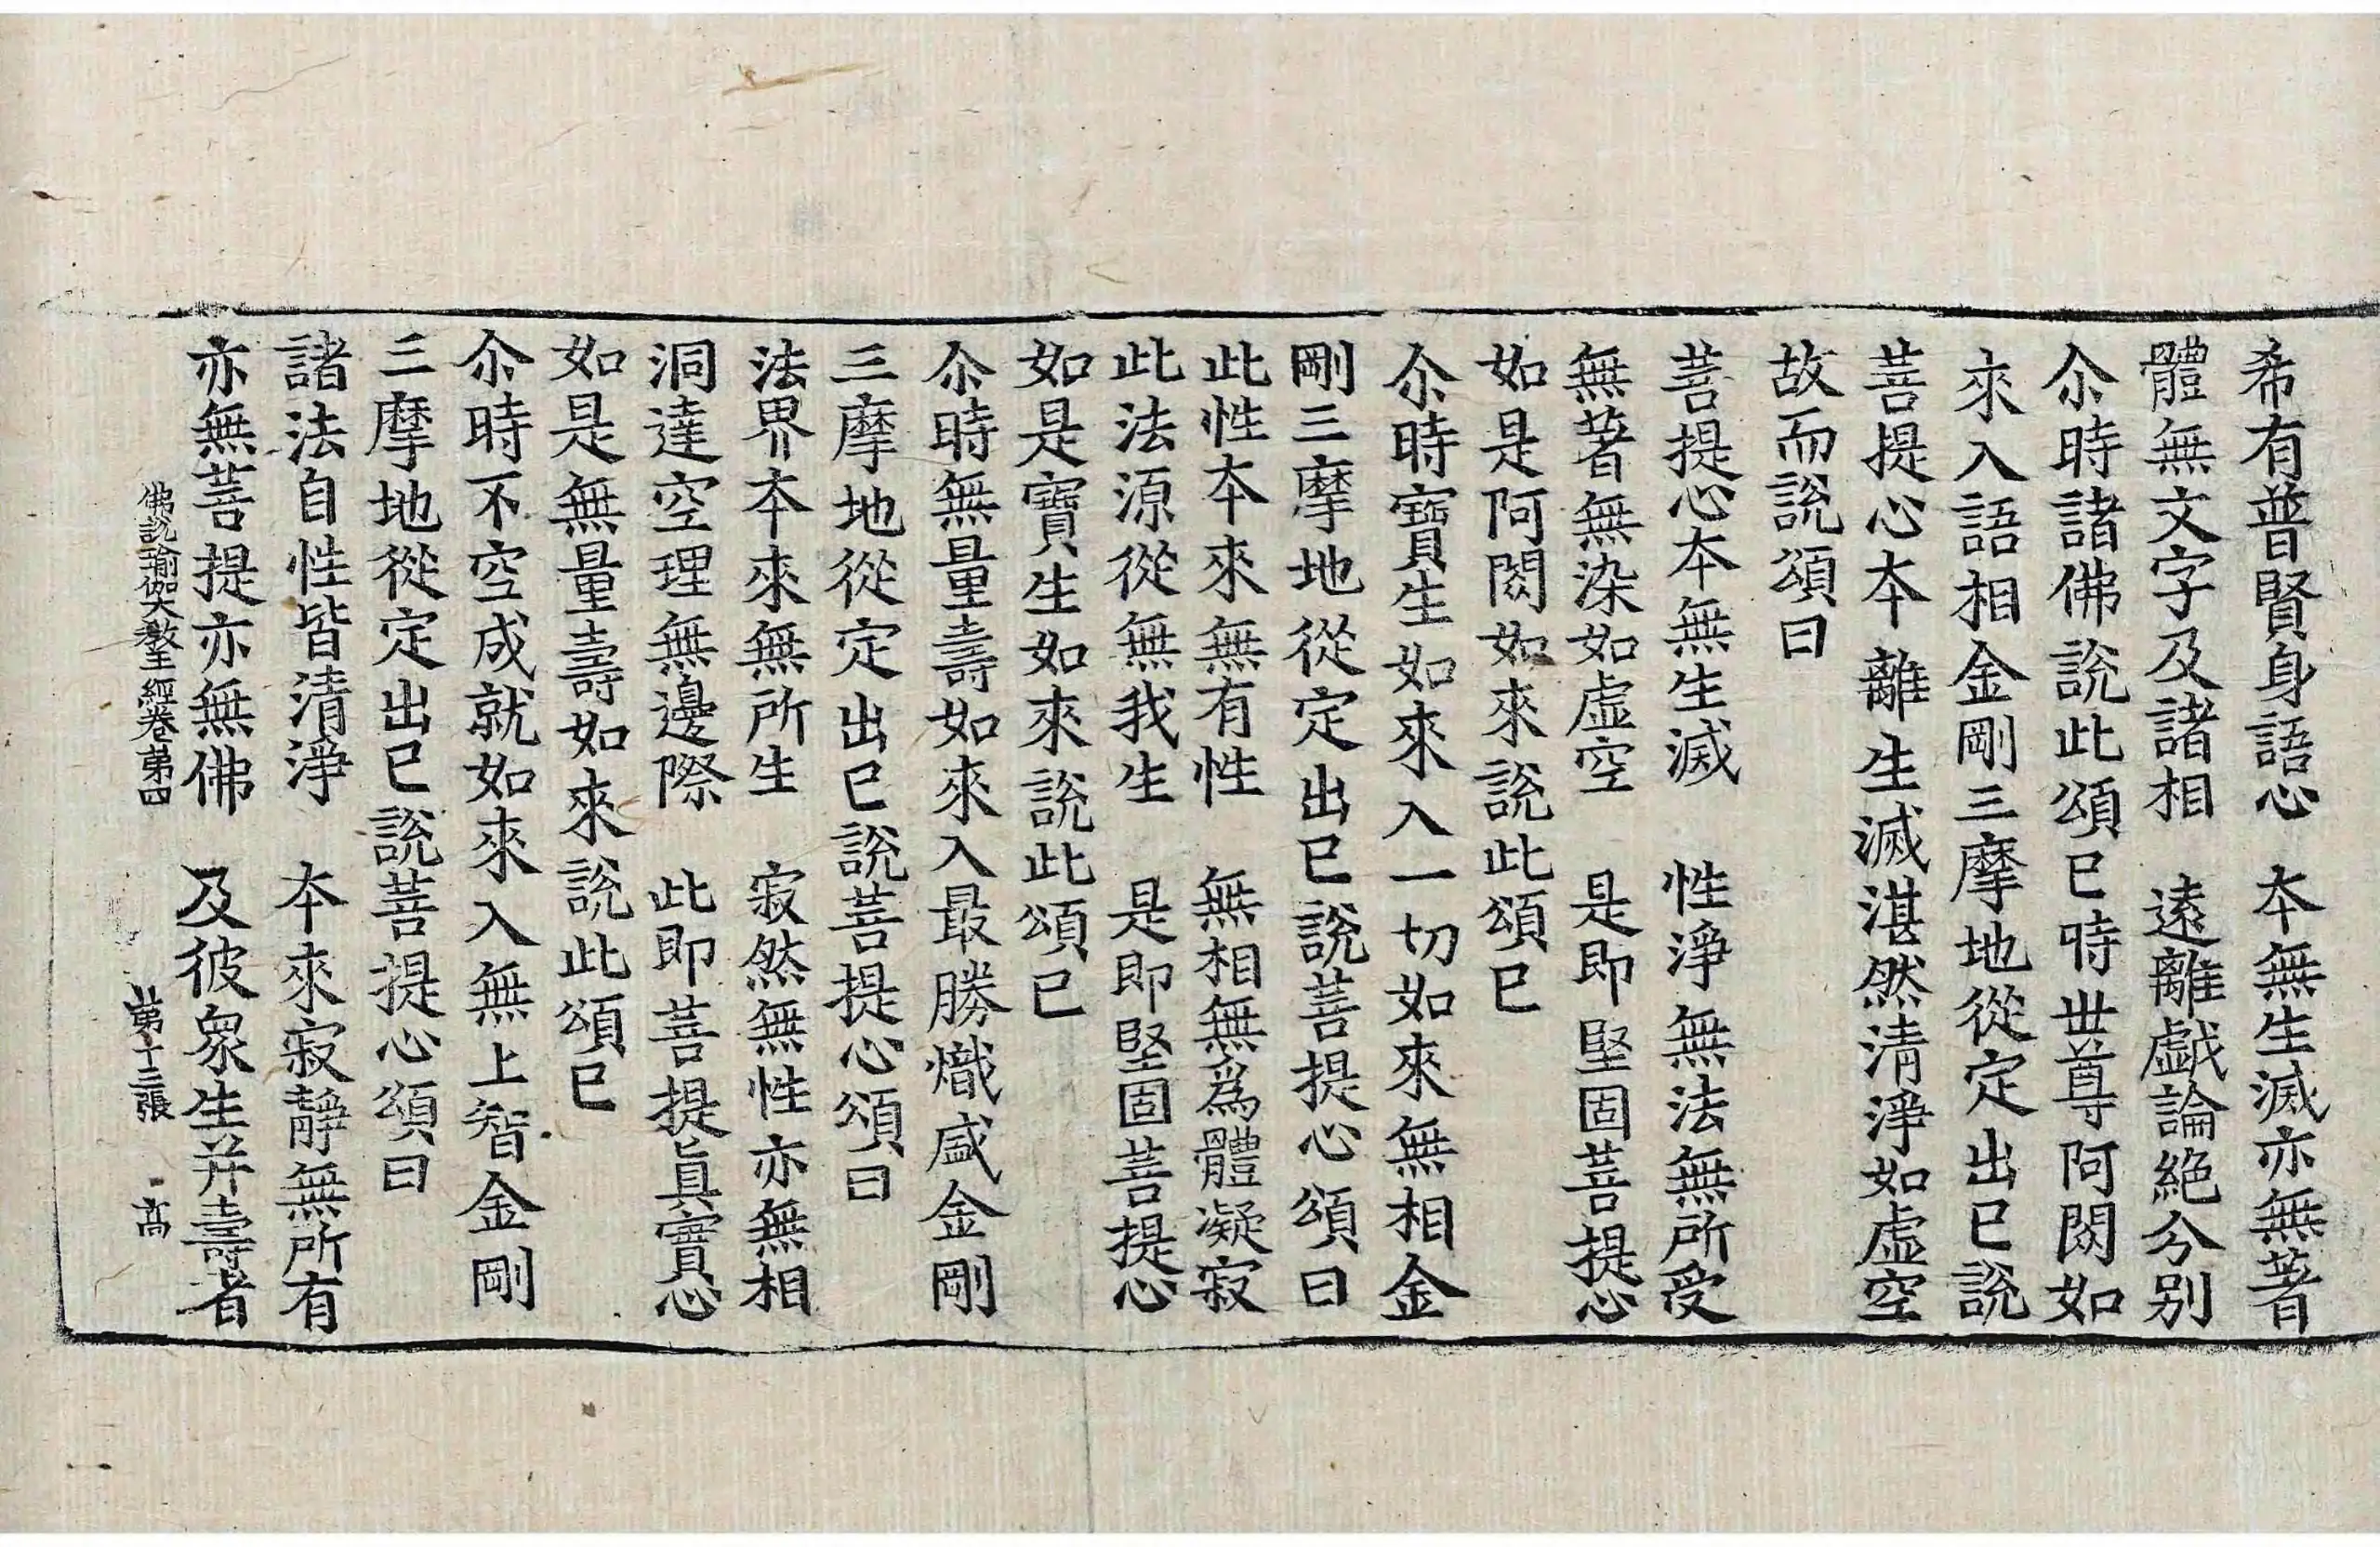 希有普賢身語心　本無生滅亦無著
體無文字及諸相　遠離戱論絶分别
尒時諸佛說此頌已時世尊阿閦如
來入語相金剛三摩地從定出已說
菩提心本離生滅湛然清淨如虛空
故而說頌曰
菩提心本無生滅　性淨無法無所受
無著無染如虛空　是即堅固菩提心
如是阿閦如來說此頌已
尒時寶生如來入一切如來無相金
剛三摩地從定出已說菩提心頌曰
此性本來無有性　無相無爲體凝寂
此法源從無我生　是即堅固菩提心
如是寶生如來說此頌已
尒時無量壽如來入最勝熾盛金剛
三摩地從定出已說菩提心頌曰
法界本來無所生　寂然無性亦無相
洞達空理無邊際　此即菩提眞實心
如是無量壽如來說此頌已
尒時不空成就如來入無上智金剛
三摩地從定出已說菩提心頌曰
諸法自性皆清淨　本來寂靜無所有
亦無菩提亦無佛　及彼衆生并壽者
佛說瑜伽大敎王經卷第四　第十三張　高